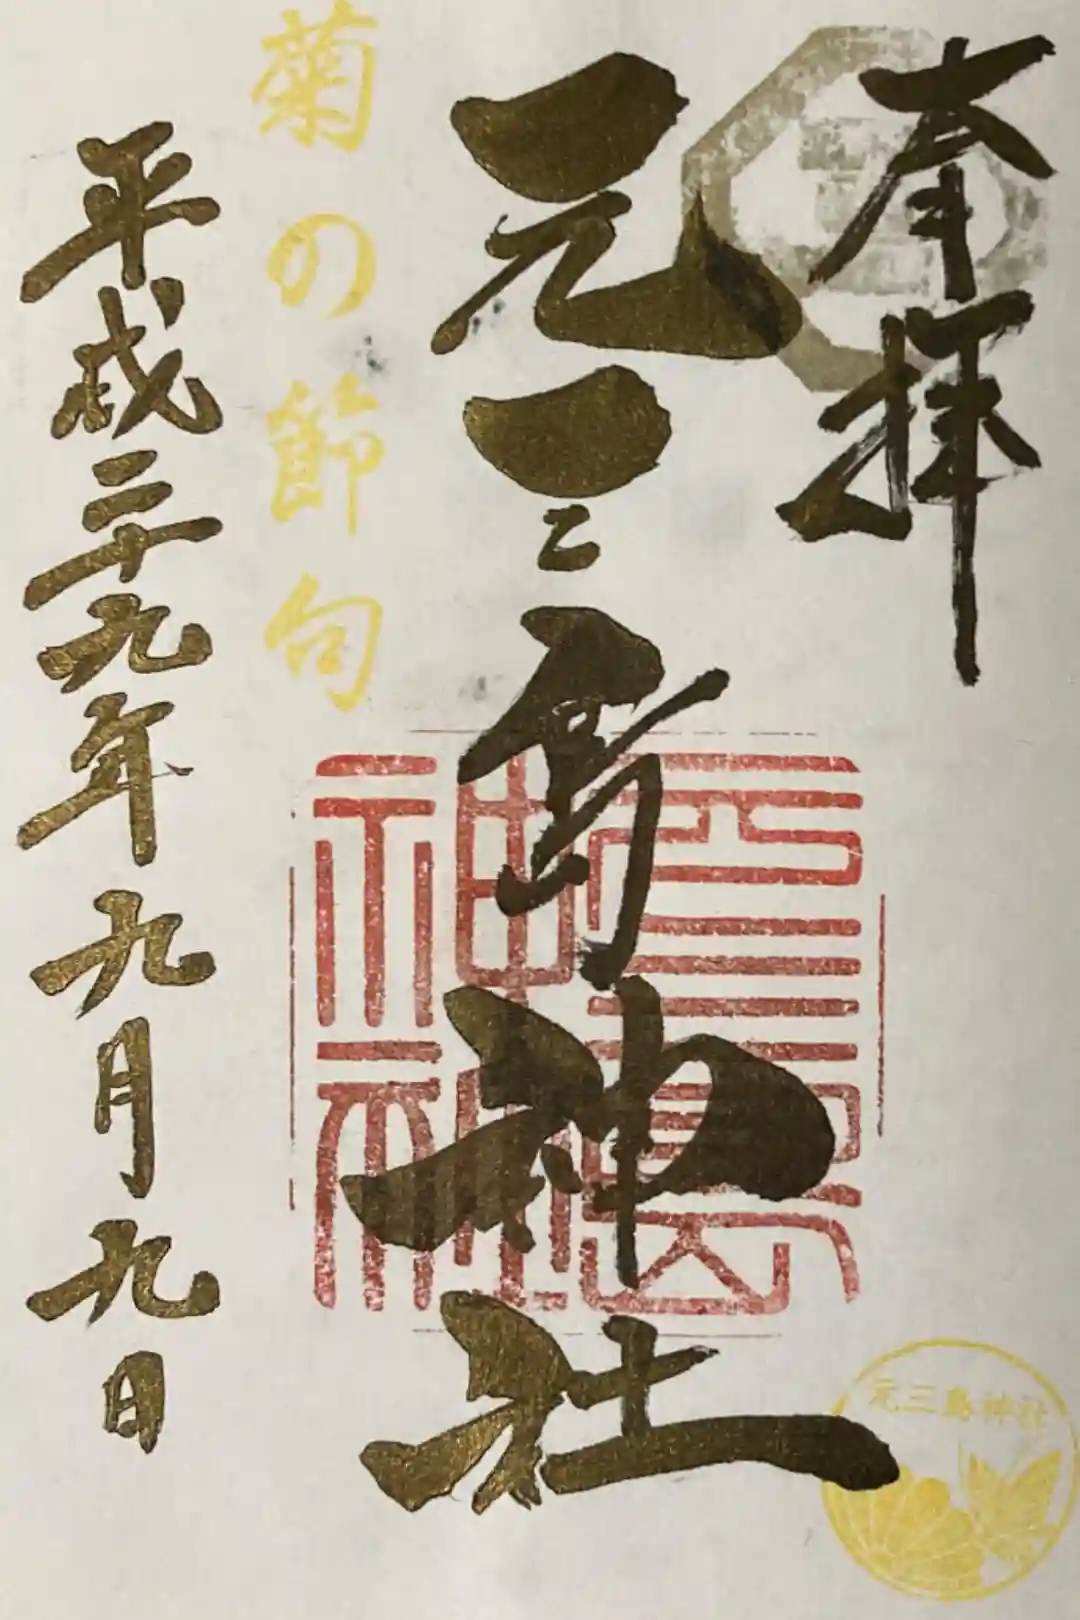 奉拝
元三島神社
菊の節句
平成二十九年九月九日
元三島神社
元三島神社